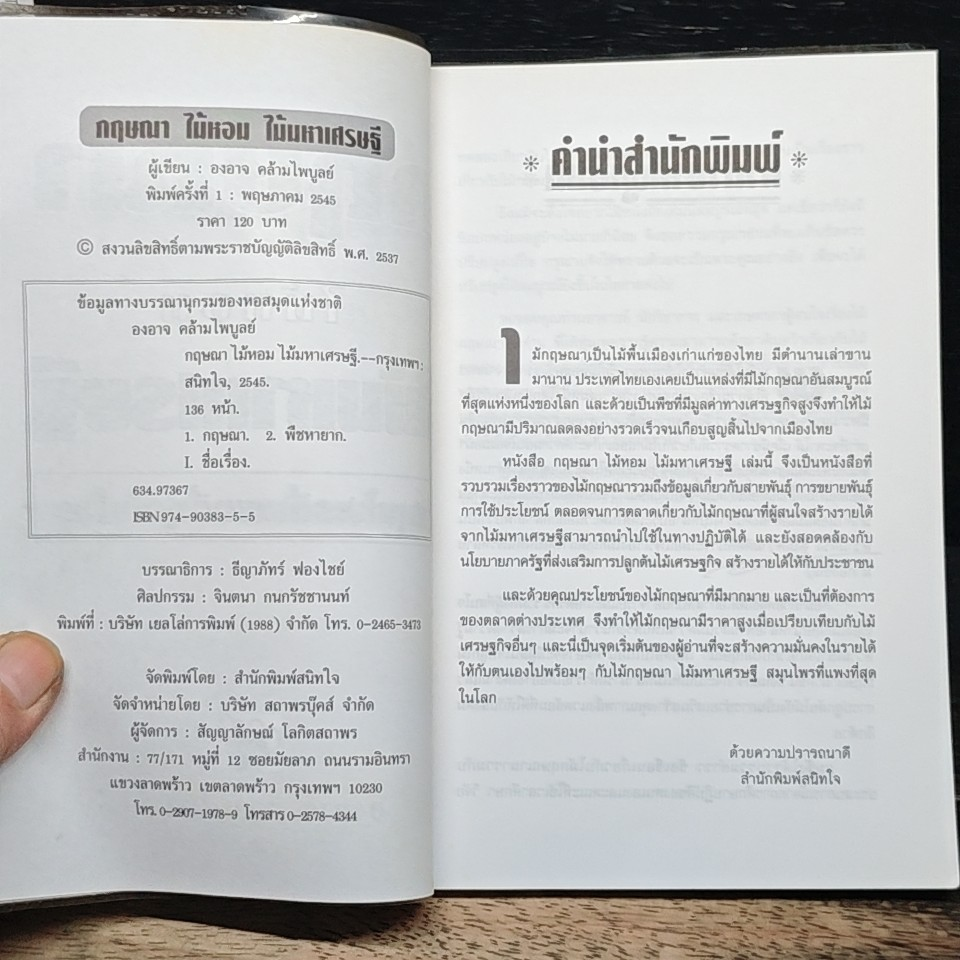 กฤษณา ไม้หอม ไม้มหาเศรษฐี
ผู้เขียน : องอาจ คล้ามไพบูลย์
พิมพ์ครั้งที่ 1 : พฤษภาคม 2545
ราคา 120 บาท
© สงวนลิขสิทธิ์ตามพระราชบัญญัติลิขสิทธิ์ พ.ศ. 2537
ข้อมูลทางบรรณานุกรมของหอสมุดแห่งชาติ
องอาจ คล้ามไพบูลย์
กฤษณา ไม้หอม ไม้มหาเศรษฐี.--กรุงเทพฯ:
สนิทใจ, 2545.
136 หน้า.
1. กฤษณา. 2. พืชหายาก.
I. ชื่อเรื่อง.
634.97367
ISBN 974-90383-5-5
บรรณาธิการ : ธีญาภัทร์ ฟองไชย์
ศิลปกรรม : จินตนา กนกรัชชานนท์
พิมพ์ที่ : บริษัท เยลโล่การพิมพ์ (1988) จำกัด โทร. 0-2465-3473
จัดพิมพ์โดย : สำนักพิมพ์สนิทใจ
จัดจำหน่ายโดย : บริษัท สถาพรบุ๊คส์ จำกัด
ผู้จัดการ : สัญญาลักษณ์ โลกิตสถาพร
สำนักงาน : 77/171 หมู่ที่ 12 ซอยมัยลาภ ถนนรามอินทรา
แขวงลาดพร้าว เขตลาดพร้าว กรุงเทพฯ 10230
โทร. 0-2907-1978-9 โทรสาร 0-2578-4344
คำนำสำนักพิมพ์
ไม้กฤษณาเป็นไม้พื้นเมืองเก่าแก่ของไทย มีตำนานเล่าขาน
มานาน ประเทศไทยเองเคยเป็นแหล่งที่มีไม้กฤษณาอันสมบูรณ์
ที่สุดแห่งหนึ่งของโลก และด้วยเป็นพืชที่มีมูลค่าทางเศรษฐกิจสูงจึงทำให้ไม้
กฤษณามีปริมาณลดลงอย่างรวดเร็วจนเกือบสูญสิ้นไปจากเมืองไทย
หนังสือ กฤษณา ไม้หอม ไม้มหาเศรษฐี เล่มนี้ จึงเป็นหนังสือที่
รวบรวมเรื่องราวของไม้กฤษณารวมถึงข้อมูลเกี่ยวกับสายพันธุ์ การขยายพันธุ์
การใช้ประโยชน์ ตลอดจนการตลาดเกี่ยวกับไม้กฤษณาที่ผู้สนใจสร้างรายได้
จากไม้มหาเศรษฐีสามารถนำไปใช้ในทางปฏิบัติได้ และยังสอดคล้องกับ
นโยบายภาครัฐที่ส่งเสริมการปลูกต้นไม้เศรษฐกิจ สร้างรายได้ให้กับประชาชน
และด้วยคุณประโยชน์ของไม้กฤษณาที่มีมากมาย และเป็นที่ต้องการ
ของตลาดต่างประเทศ จึงทำให้ไม้กฤษณามีราคาสูงเมื่อเปรียบเทียบกับไม้
เศรษฐกิจอื่นๆ และนี่เป็นจุดเริ่มต้นของผู้อ่านที่จะสร้างความมั่นคงในรายได้
ให้กับตนเองไปพร้อมๆ กับไม้กฤษณา ไม้มหาเศรษฐี สมุนไพรที่แพงที่สุด
ในโลก
ด้วยความปรารถนาดี
สำนักพิมพ์สนิทใจ